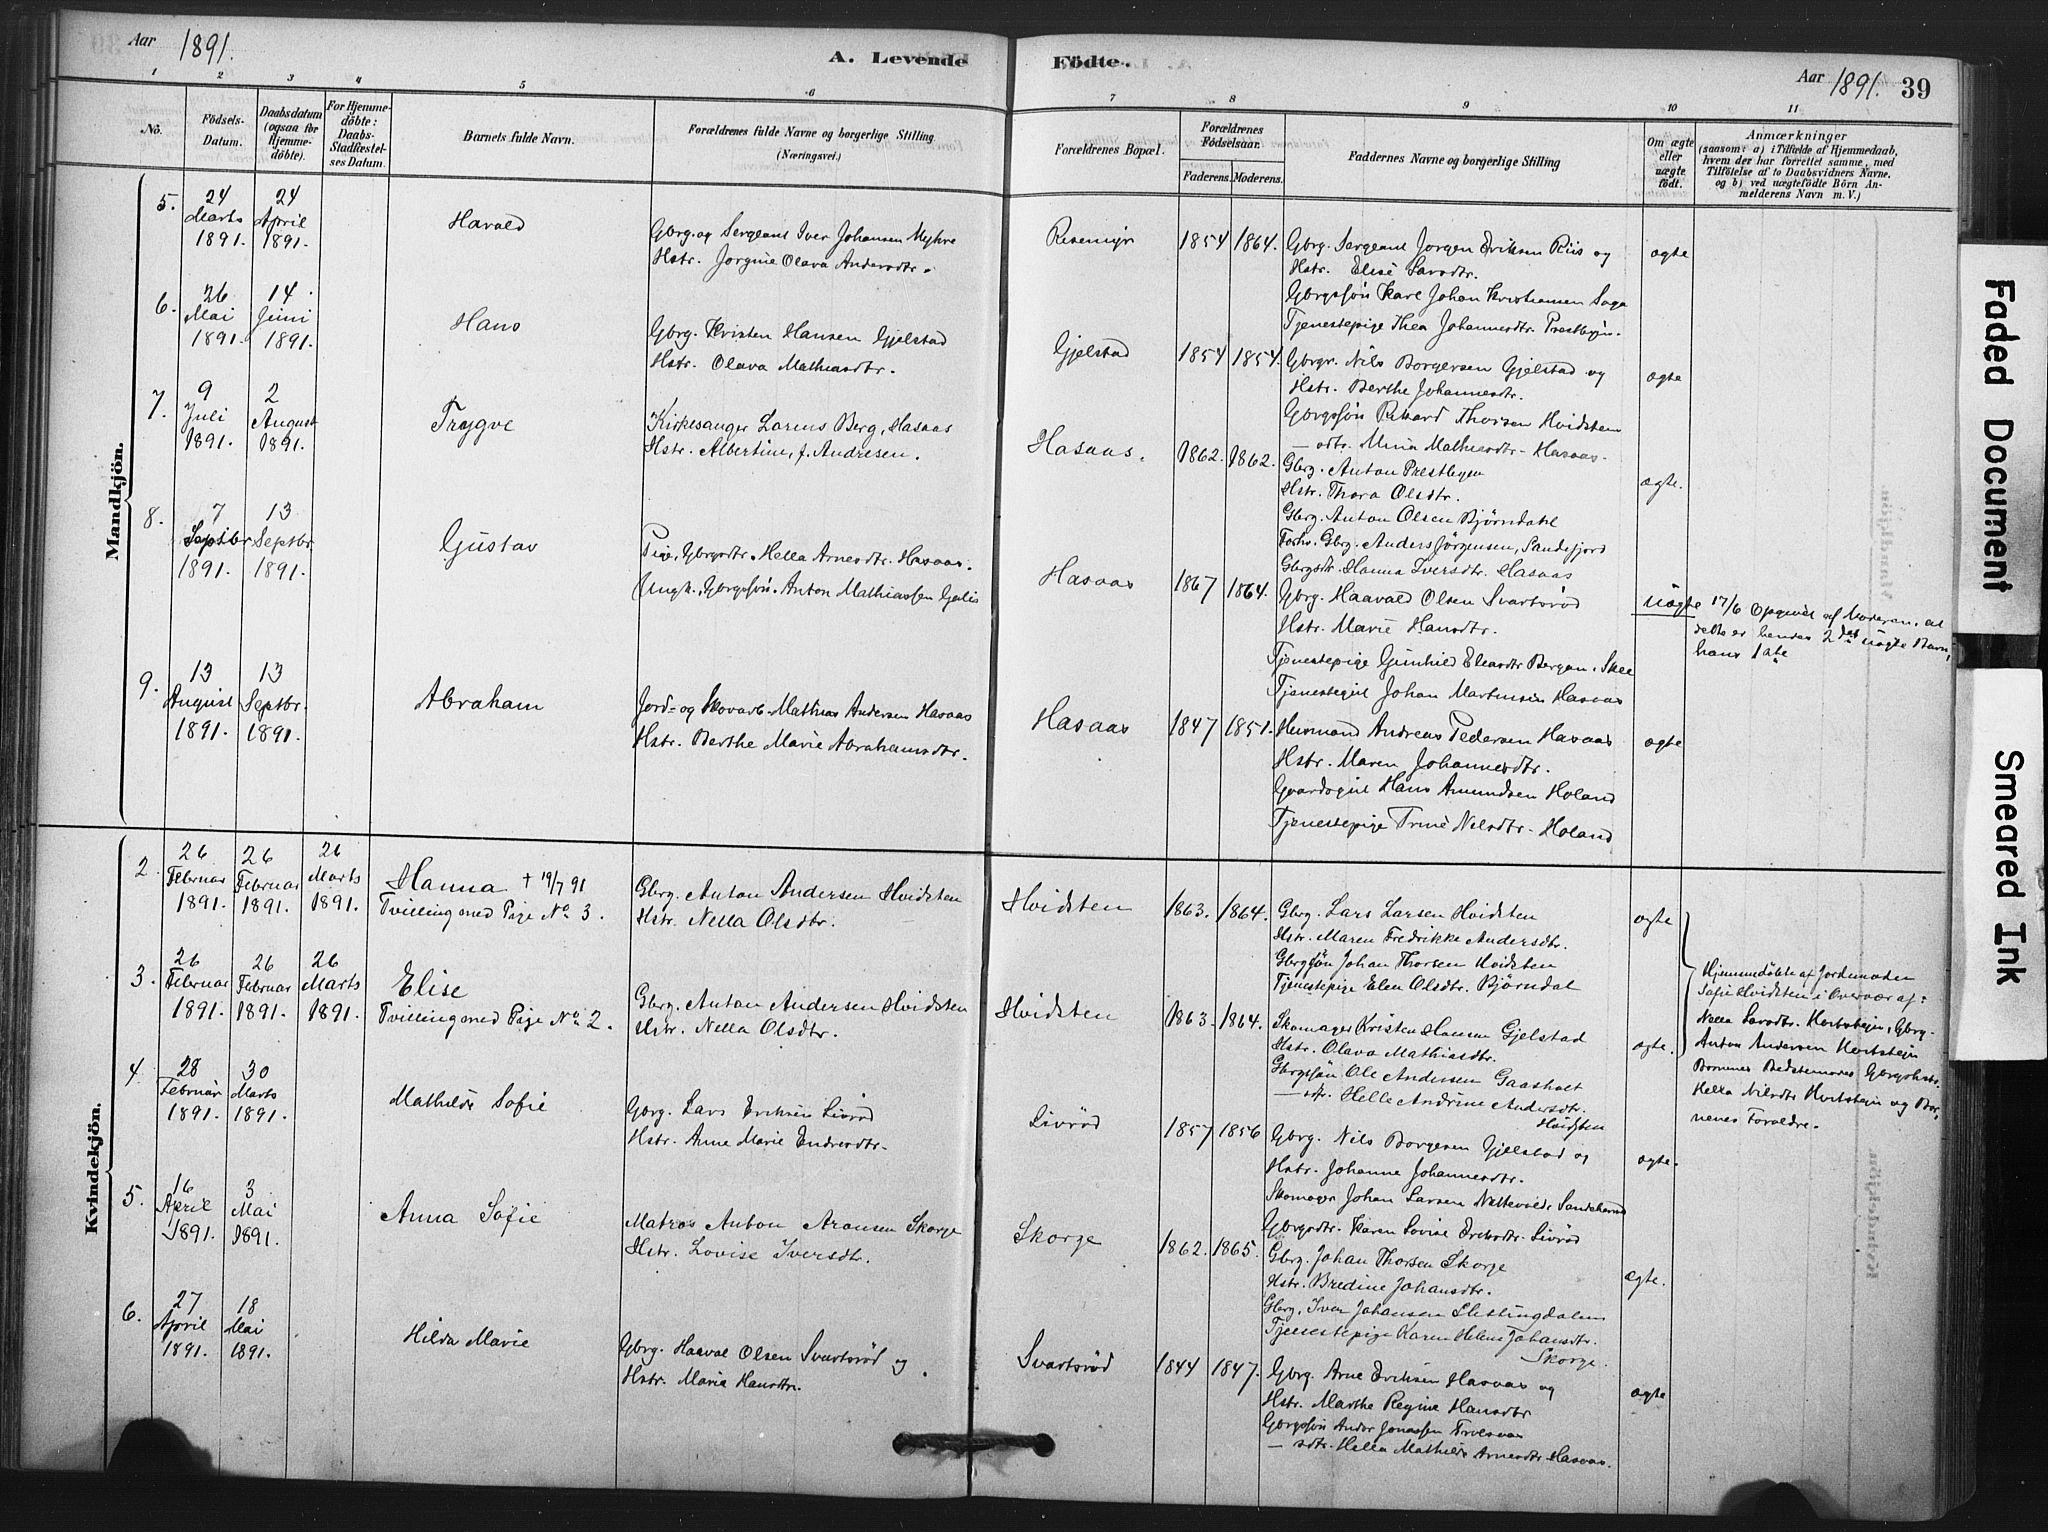 Aar 1891.
A. Levende Födte.
Aar 1891. 39
1 2 3 4 5 6 7 8 9 10 11
No.
Födsels-
Datum.
Daabsdatum
(ogsaa for
Hjemme-
döbte).
For Hjemme-
döbte:
Daabs-
Stadfæstel-
ses Datum.
Barnets fulde Navn.
Forældrenes fulde Navne og borgerlige Stilling
(Næringsvei.)
Forældrenes Bopæl.
Forældrenes
Födselsaar.
Faderens. Moderens.
Faddernes Navne og borgerlige Stilling
Om ægte
eller
uægte
födt.
Anmærkninger
(saasom: a) i Tilfælde af Hjemmedaab,
hvem der har forrettet samme, med
Tilföielse af to Daabsvidners Navne.
og b) ved uægtefödte Börn An-
melderens Navn m. V.)
Mandkjön.
5.
24
Marts
1891.
24
April
1891.
Havald
Gbrg. og Sergeant Iver Johansen Myhre
Hstr. Jorgine Olava Andersdtr.
Risemyr
1854 1864.
Gbrg. Sergeant Jorgen Eriksen Riis og
Hstr. Elise Larsdtr.
Gbrgssön Karl Johan Kristiansen Saga
Tjenestepige Thea Johannesdtr. Prestbyen.
ægte
6.
26
Mai
1891.
14
Juni
1891.
Hans
Gbrg. Kristen Hansen Gjelstad
Hstr. Olava Mathiasdtr.
Gjelstad
1854 1854.
Gbrgr. Nils Borgersen Gjelstad og
Hstr. Berthe Johannesdtr.
Gbrgssön Rikard Thorsen Hvidsten
— sdtr. Mina Mathiesdtr. Hasaas.
ægte
7.
9
Juli
1891.
2
August
1891.
Trygve
Kirkesanger Lorens Berg, Hasaas
Hstr. Albertine, f. Andresen.
Hasaas.
1862. 1862.
Gbrg. Anton Prestbyen
Hstr. Thora Olsdtr.
Gbrg. Anton Olsen Bjørndahl
Forhv. Gbrg. Anders Jörgensen, Sandefjord
Gbrgsdtr. Hanna Iversdtr. Hasaas
ægte.
8.
7
Septbr
1891.
13
Septbr
1891.
Gustav
Pige, Gbrgsdtr. Hella Arnesdtr. Hasaas.
Ungk., Gbrgssön. Anton Mathiassen
Hasaas
1867 1864.
Gbrg. Haavald Olsen Svartsröd
Hstr. Marie Hansdtr.
Tjenestepige Gunhild Bergan, Skee
Tjenestegut Johan Martinsen Hasaas
uægte
17/6 Opgives af Moderen, at
dette er hendes 2det uægte Barn,
hans 1ste
9.
13
August
1891.
13
Septbr.
1891.
Abraham
Jord- og Skovarb. Mathias Andersen Hasaas
Hstr. Berthe Marie Abrahamsdtr.
Hasaas
1847 1851.
Husmand Andreas Pedersen Hasaas
Hstr. Maren Johannesdtr.
Gaardsgut Hans Amundsen Holand
Tjenestepige Trine Nilsdtr. Holand
ægte
Kvindekjön.
2.
26
Februar
1891.
26
Februar
1891.
26
Marts
1891.
Hanna † 19/7 91
Tvilling med Pige No. 3.
Gbrg. Anton Andersen Hvidsten
Hstr. Nella Olsdtr.
Hvidsten
1863. 1864.
Gbrg. Lars Larsen Hvidsten
Hstr. Maren Fredrikke Andersdtr.
Gbrgssön Johan Thorsen Hvidsten
Tjenestepige Elen Olsdtr. Björndal
ægte
Hjemmedöbte af Jordemoder
Sofie Hvidsten i Overvær af:
Nella Larsdtr. Gbrg.
Anton Andersen
Börnenes Bedstemoder
Hella Nilsdtr og Bör-
nenes Forældre.
3.
26
Februar
1891.
26
Februar
1891.
26
Marts
1891.
Elise
Tvilling med Pige No. 2.
Gbrg. Anton Andersen Hvidsten
Hstr. Nella Olsdtr.
Hvidsten
1863. 1864.
Skomager Kristen Hansen Gjelstad
Hstr. Olava Mathiasdtr.
Gbrgssön Ole Andersen Gaasholt
— str. Helle Andrine Andersdtr.
Hvidsten
ægte.
4.
28
Februar
1891.
30
Marts
1891.
Mathilde Sofie
Gbrg. Lars Eriksen Livröd
Hstr. Anne Marie Endresdtr.
Livröd
1857 1856
Gbrg. Nils Borgersen Gjelstad og
Hstr. Johanne Johannesdtr.
Skomager Johan Larsen Nattevald, Sandeherred
Gbrgsdtr. Karen Lovise Ericksdtr. Livröd
ægte.
5.
16
April
1891.
3
Mai
1891.
Anna Sofie
Matros Anton Aronsen Skorge
Hstr. Lovise Iversdtr.
Skorge
1862. 1865.
Gbrg. Johan Thorsen Skorge
Hstr. Bredine Johansdtr.
Gbrg. Iver Johansen Slettingdalen
Tjenestepige Karen Helene Johansdtr.
Skorge.
ægte.
6.
27
April
1891.
18
Mai
1891.
Hilda Marie
Gbrg. Haaval Olsen Svartsröd og
Hstr. Marie Hansdtr.
Svartsröd
1844 1847.
Gbrg. Arne Eriksen Hasaas og
Hstr. Marthe Regine Hansdtr
Gbrgssön Anders Jonassen
— sdtr. Hella Mathilde Arnesdtr. Hasaas.
ægte
Faded Document
Smeared Ink